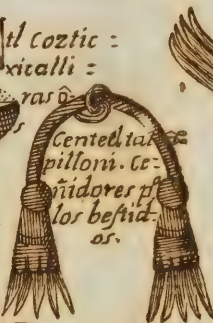 tl coztic =
xicalli =
ras q̃.
s
Centetl tal
pilloni. Ce-
ñidores pª
los bestid-
os.